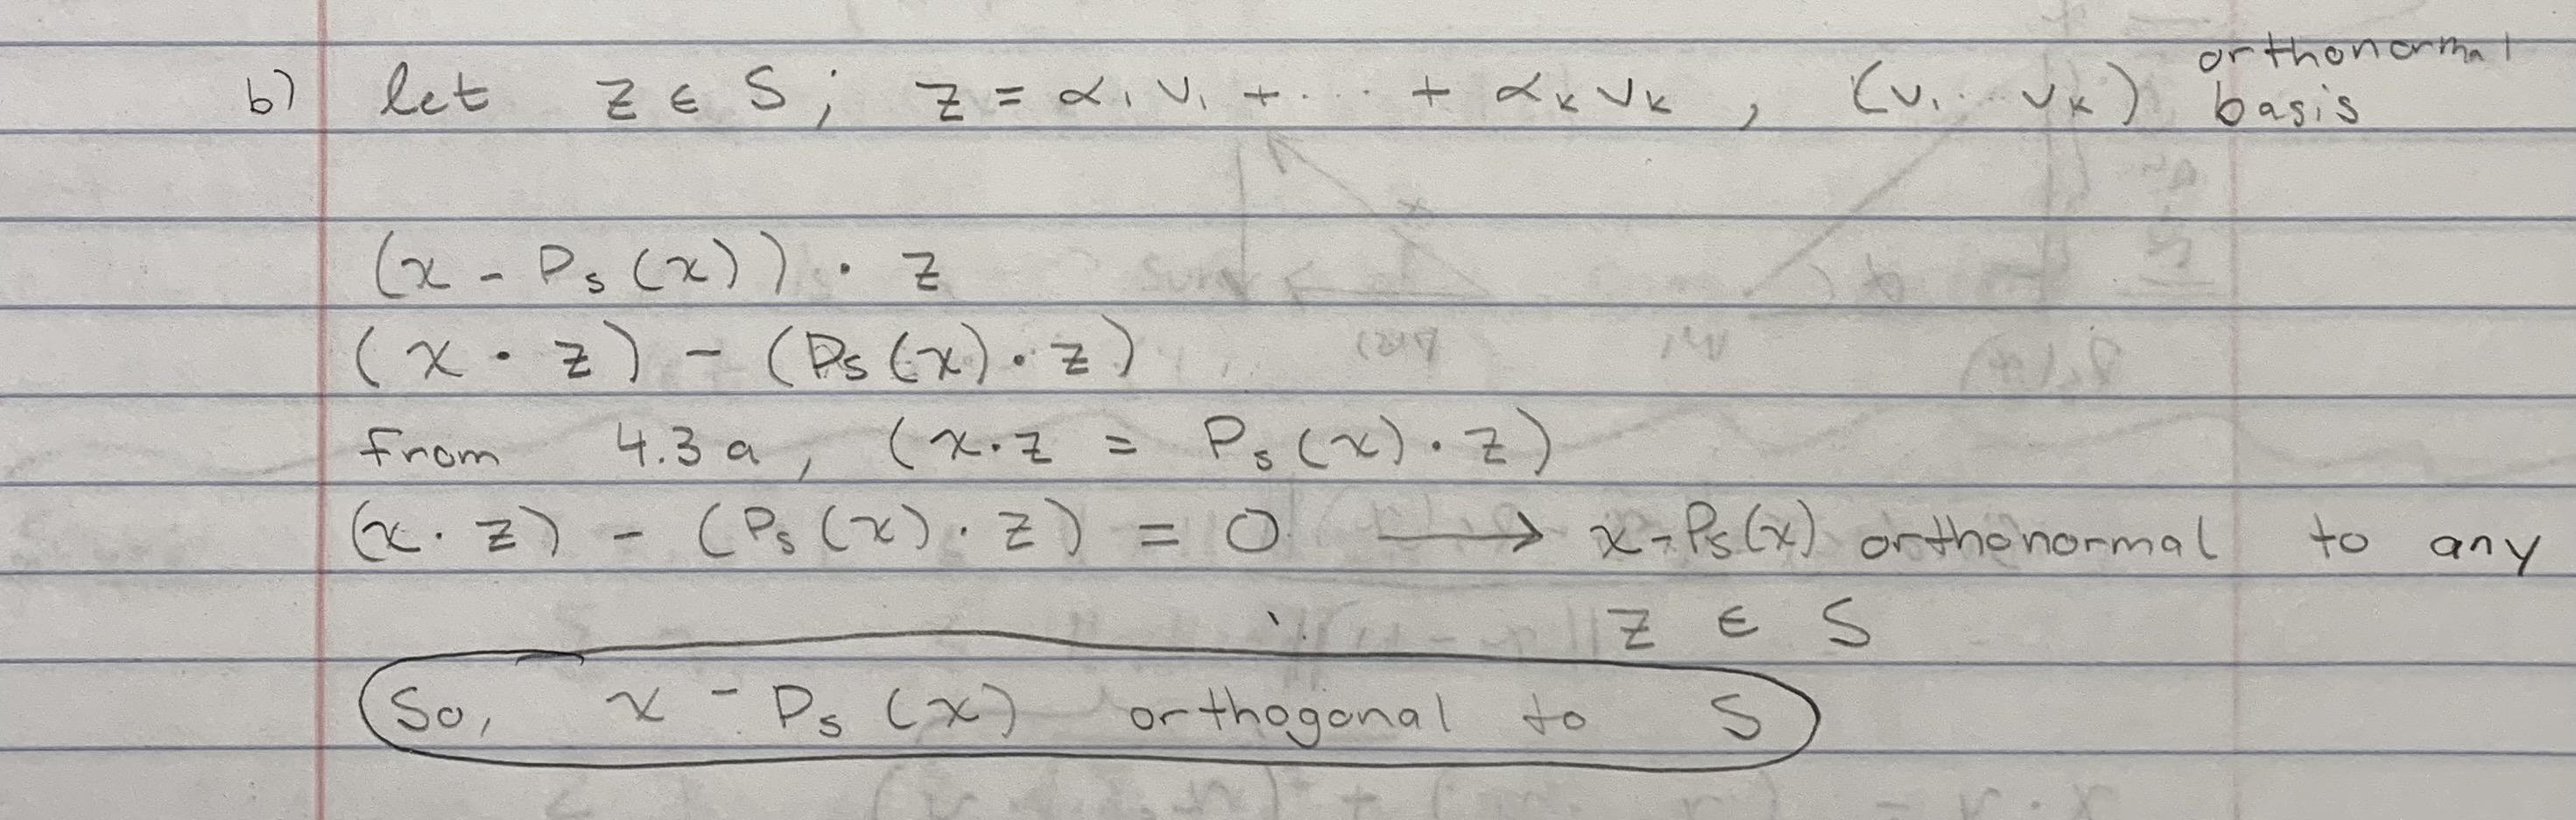 b) let z ∈ S; z = α₁v₁ + ... + αₖvₖ , (v₁.. vₖ) orthonormal basis
(x - Pₛ(x)) · z
(x · z) - (Pₛ(x) · z)
from 4.3a, (x·z = Pₛ(x) · z)
(x · z) - (Pₛ(x) · z) = 0 ⟶ x-Pₛ(x) orthonormal to any
z ∈ S
So, x - Pₛ(x) orthogonal to S